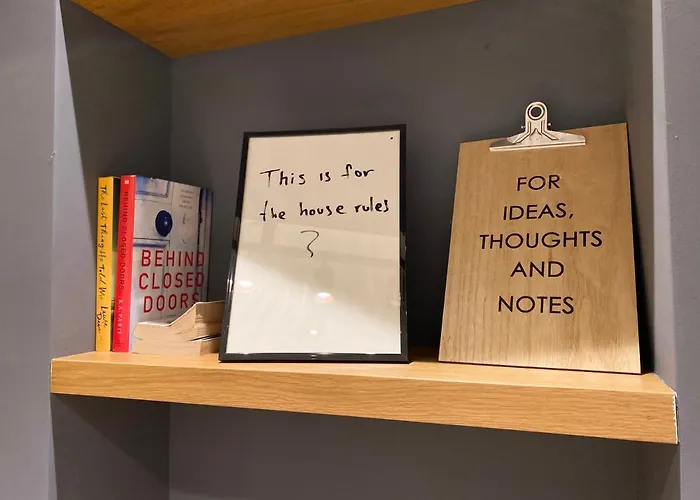 The Last Thing He Told Me Laura Dave
BEHIND CLOSED DOORS B.A. PARIS
BEHIND
CLOSED
DOORS
This is for
the house rules
?
FOR
IDEAS,
THOUGHTS
AND
NOTES